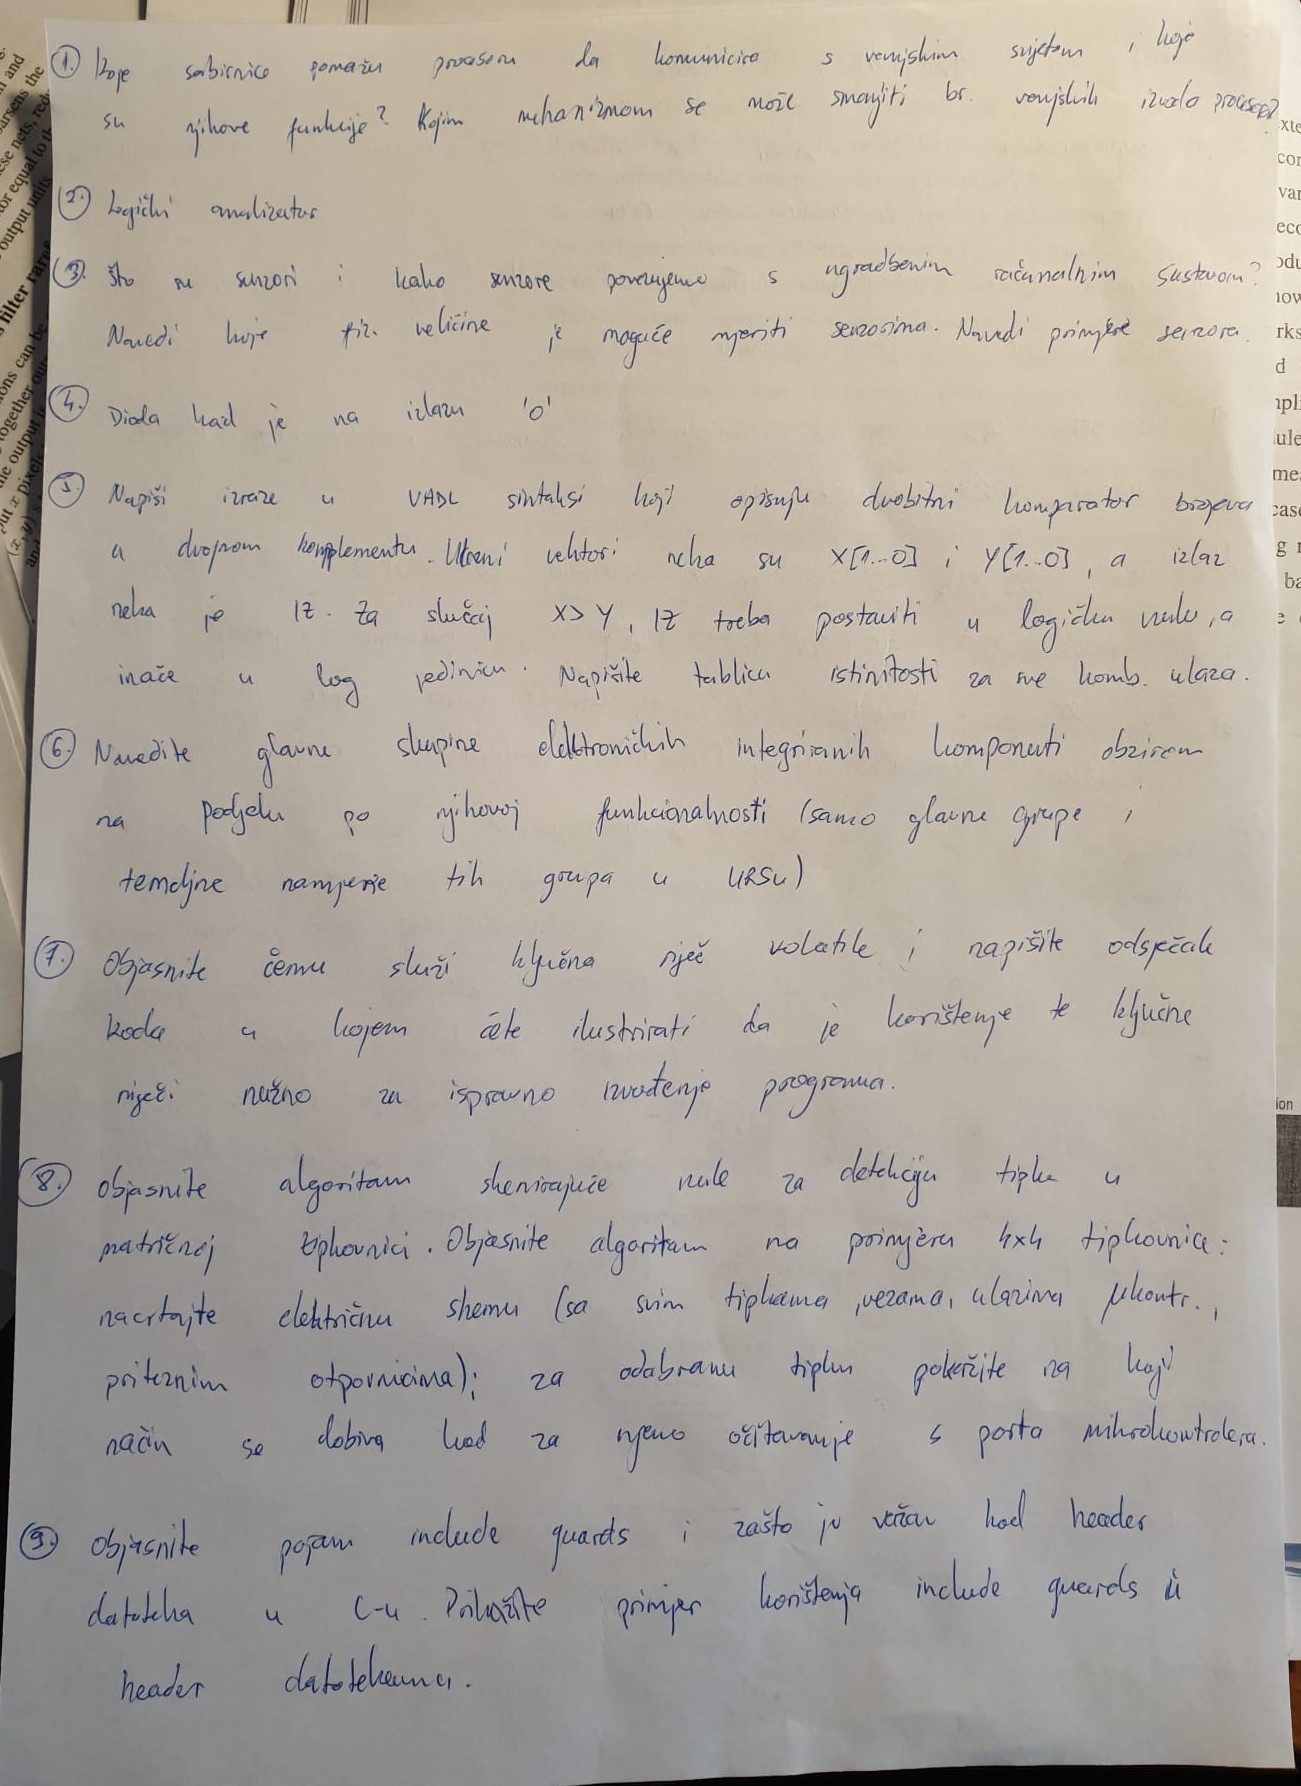 1. Koje sabirnice pomažu procesoru da komunicira s vanjskim svijetom i koje
su njihove funkcije? Kojim mehanizmom se može smanjiti br. vanjskih izvoda procesora?
2. Logički analizator
3. Što su senzori i kako senzore povezujemo s ugradbenim računalnim sustavom?
Navedi koje fiz. veličine je moguće mjeriti senzorima. Navedi primjere senzora.
4. Dioda kad je na izlazu '0'
5. Napiši izraze u VHDL sintaksi koji opisuju dvobitni komparator brojeva
u dvojnom komplementu. Ulazni vektori neka su X[1..0] i Y[1..0], a izlaz
neka je IZ. Za slučaj X>Y, IZ treba postaviti u logičku nulu, a
inače u log jedinicu. Napišite tablicu istinitosti za sve komb. ulaza.
6. Navedite glavne skupine elektroničkih integriranih komponenti obzirom
na podjelu po njihovoj funkcionalnosti (samo glavne grupe i
temeljne namjene tih grupa u URSu)
7. Objasnite čemu služi ključna riječ volatile i napišite odsječak
koda u kojem ćete ilustrirati da je korištenje te ključne
riječi nužno za ispravno izvođenje programa.
8. Objasnite algoritam skenirajuće nule za detekciju tipke u
matričnoj tipkovnici. Objasnite algoritam na primjeru 4x4 tipkovnice:
nacrtajte električnu shemu (sa svim tipkama, vezama, ulazima μkontr.,
priteznim otpornicima); za odabranu tipku pokažite na koji
način se dobiva kod za njeno očitavanje s porta mikrokontrolera.
9. Objasnite pojam include guards i zašto je važan kod header
datoteka u C-u. Prikažite primjer korištenja include guards u
header datotekama.
and
ion